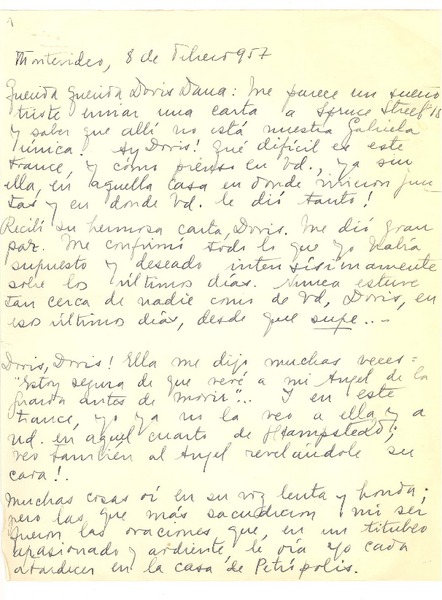 1
Montevideo, 8 de Febrero 957
Querida Querida Doris Dana: Me parece un sueño
triste enviar una carta a Spruce Street 15
y saber que allí no está nuestra Gabriela
única. Ay Doris! Qué difícil es este
trance, y cómo pienso en Vd., ya sin
ella, en aquella casa en donde vivieron jun-
tas y en donde Vd. le dió tanto!
Recibí su hermosa carta, Doris. Me dió gran
paz. Me confirmó todo lo que yo había
supuesto y deseado intensísimamente
sobre los últimos días. Nunca estuve
tan cerca de nadie como de Vd, Doris, en
esos últimos días, desde que supe...
Doris, Doris! Ella me dijo muchas veces:
"Estoy segura de que veré a mi Angel de la
Guarda antes de morir"... Y en este
trance, yo ya no la veo a ella y a
Ud. en aquel cuarto de Hampstead;
veo también al Angel revelándole su
cara!.
Muchas cosas oí en su voz lenta y honda;
pero las que más sacudieron mi ser
fueron las oraciones que, en un titubeo
apasionado y ardiente le oía yo cada
atardecer en la casa de Petrópolis.